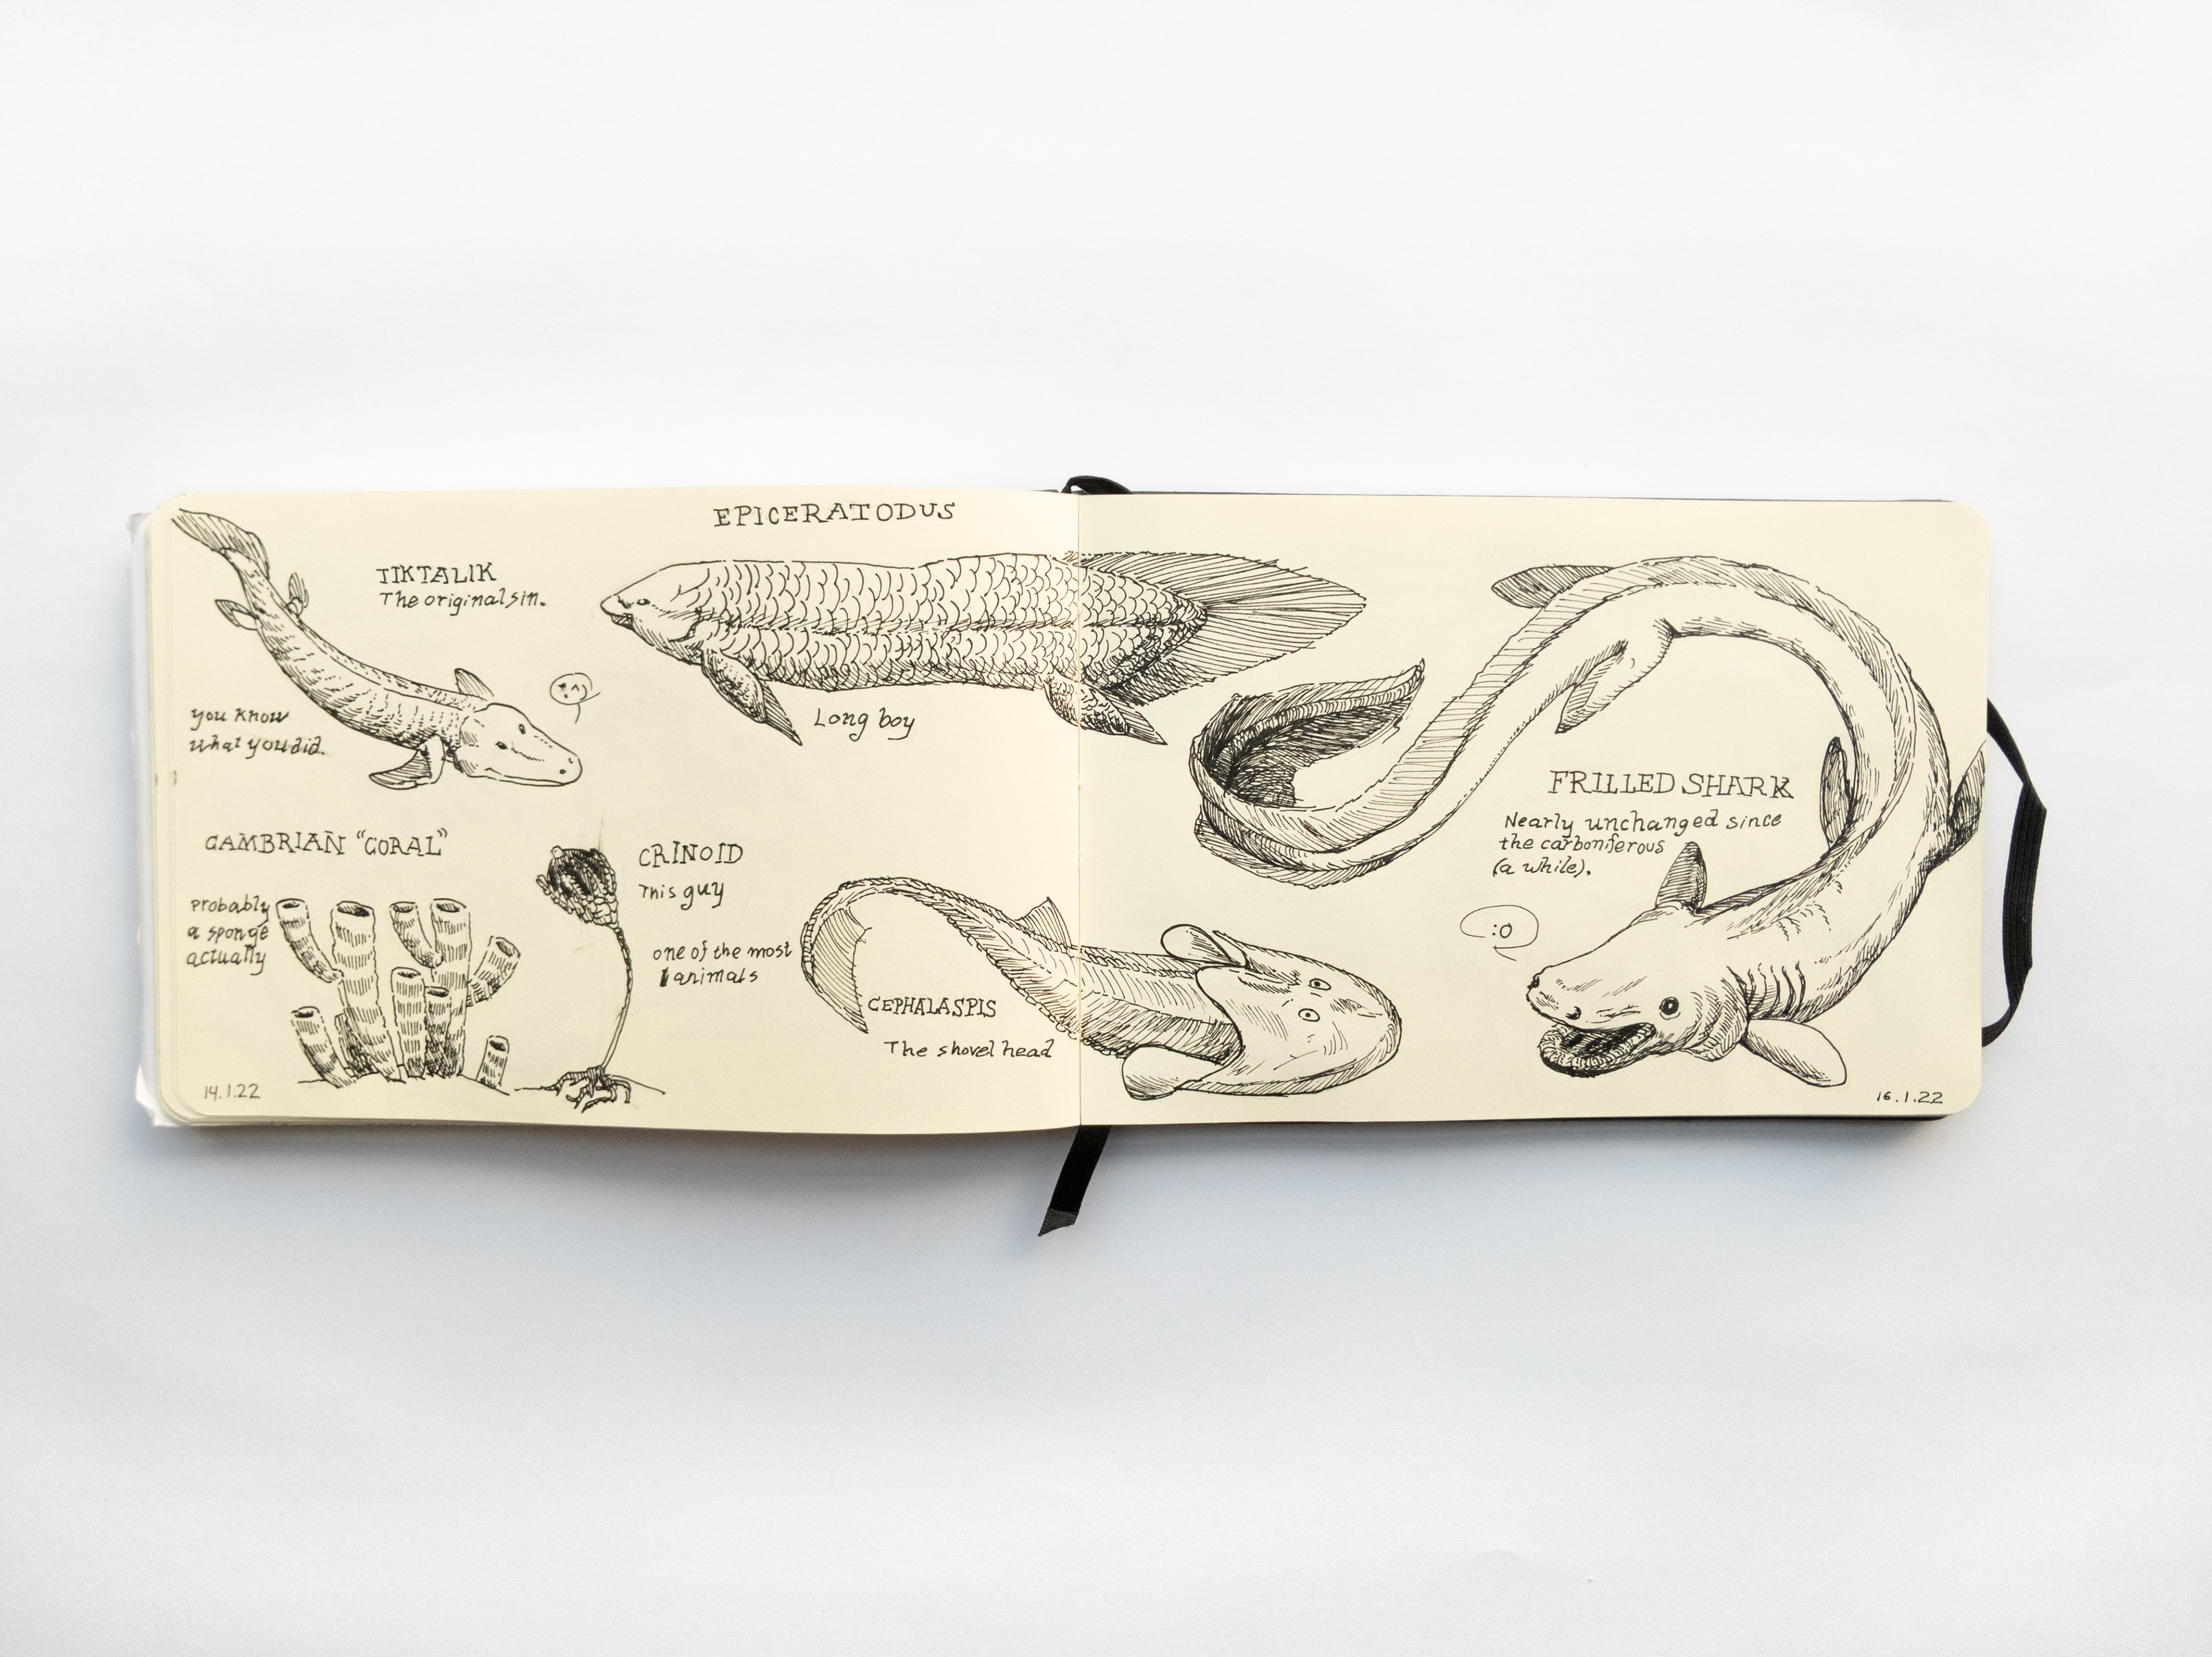 EPICERATODUS
TIKTALIK
The original sin.
you know
what you did.
Long boy
FRILLED SHARK
Nearly unchanged since
the carboniferous
(a while).
:O
CAMBRIAN "CORAL"
probably
a sponge
actually
CRINOID
This guy
one of the most
animals
CEPHALASPIS
The shovel head
14.1.22
16.1.22